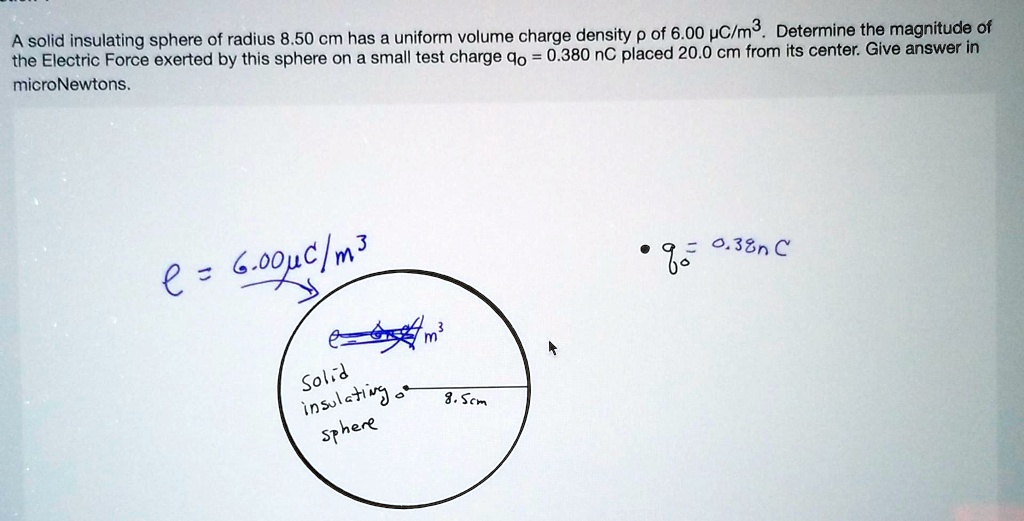 A solid insulating sphere of radius 8.50 cm has a uniform volume charge density ρ of 6.00 μC/m³. Determine the magnitude of
the Electric Force exerted by this sphere on a small test charge q₀ = 0.380 nC placed 20.0 cm from its center. Give answer in
microNewtons.
ρ = 6.00μC/m³
q₀ = 0.38nC
m³
Solid
insulating
8.5cm
sphere